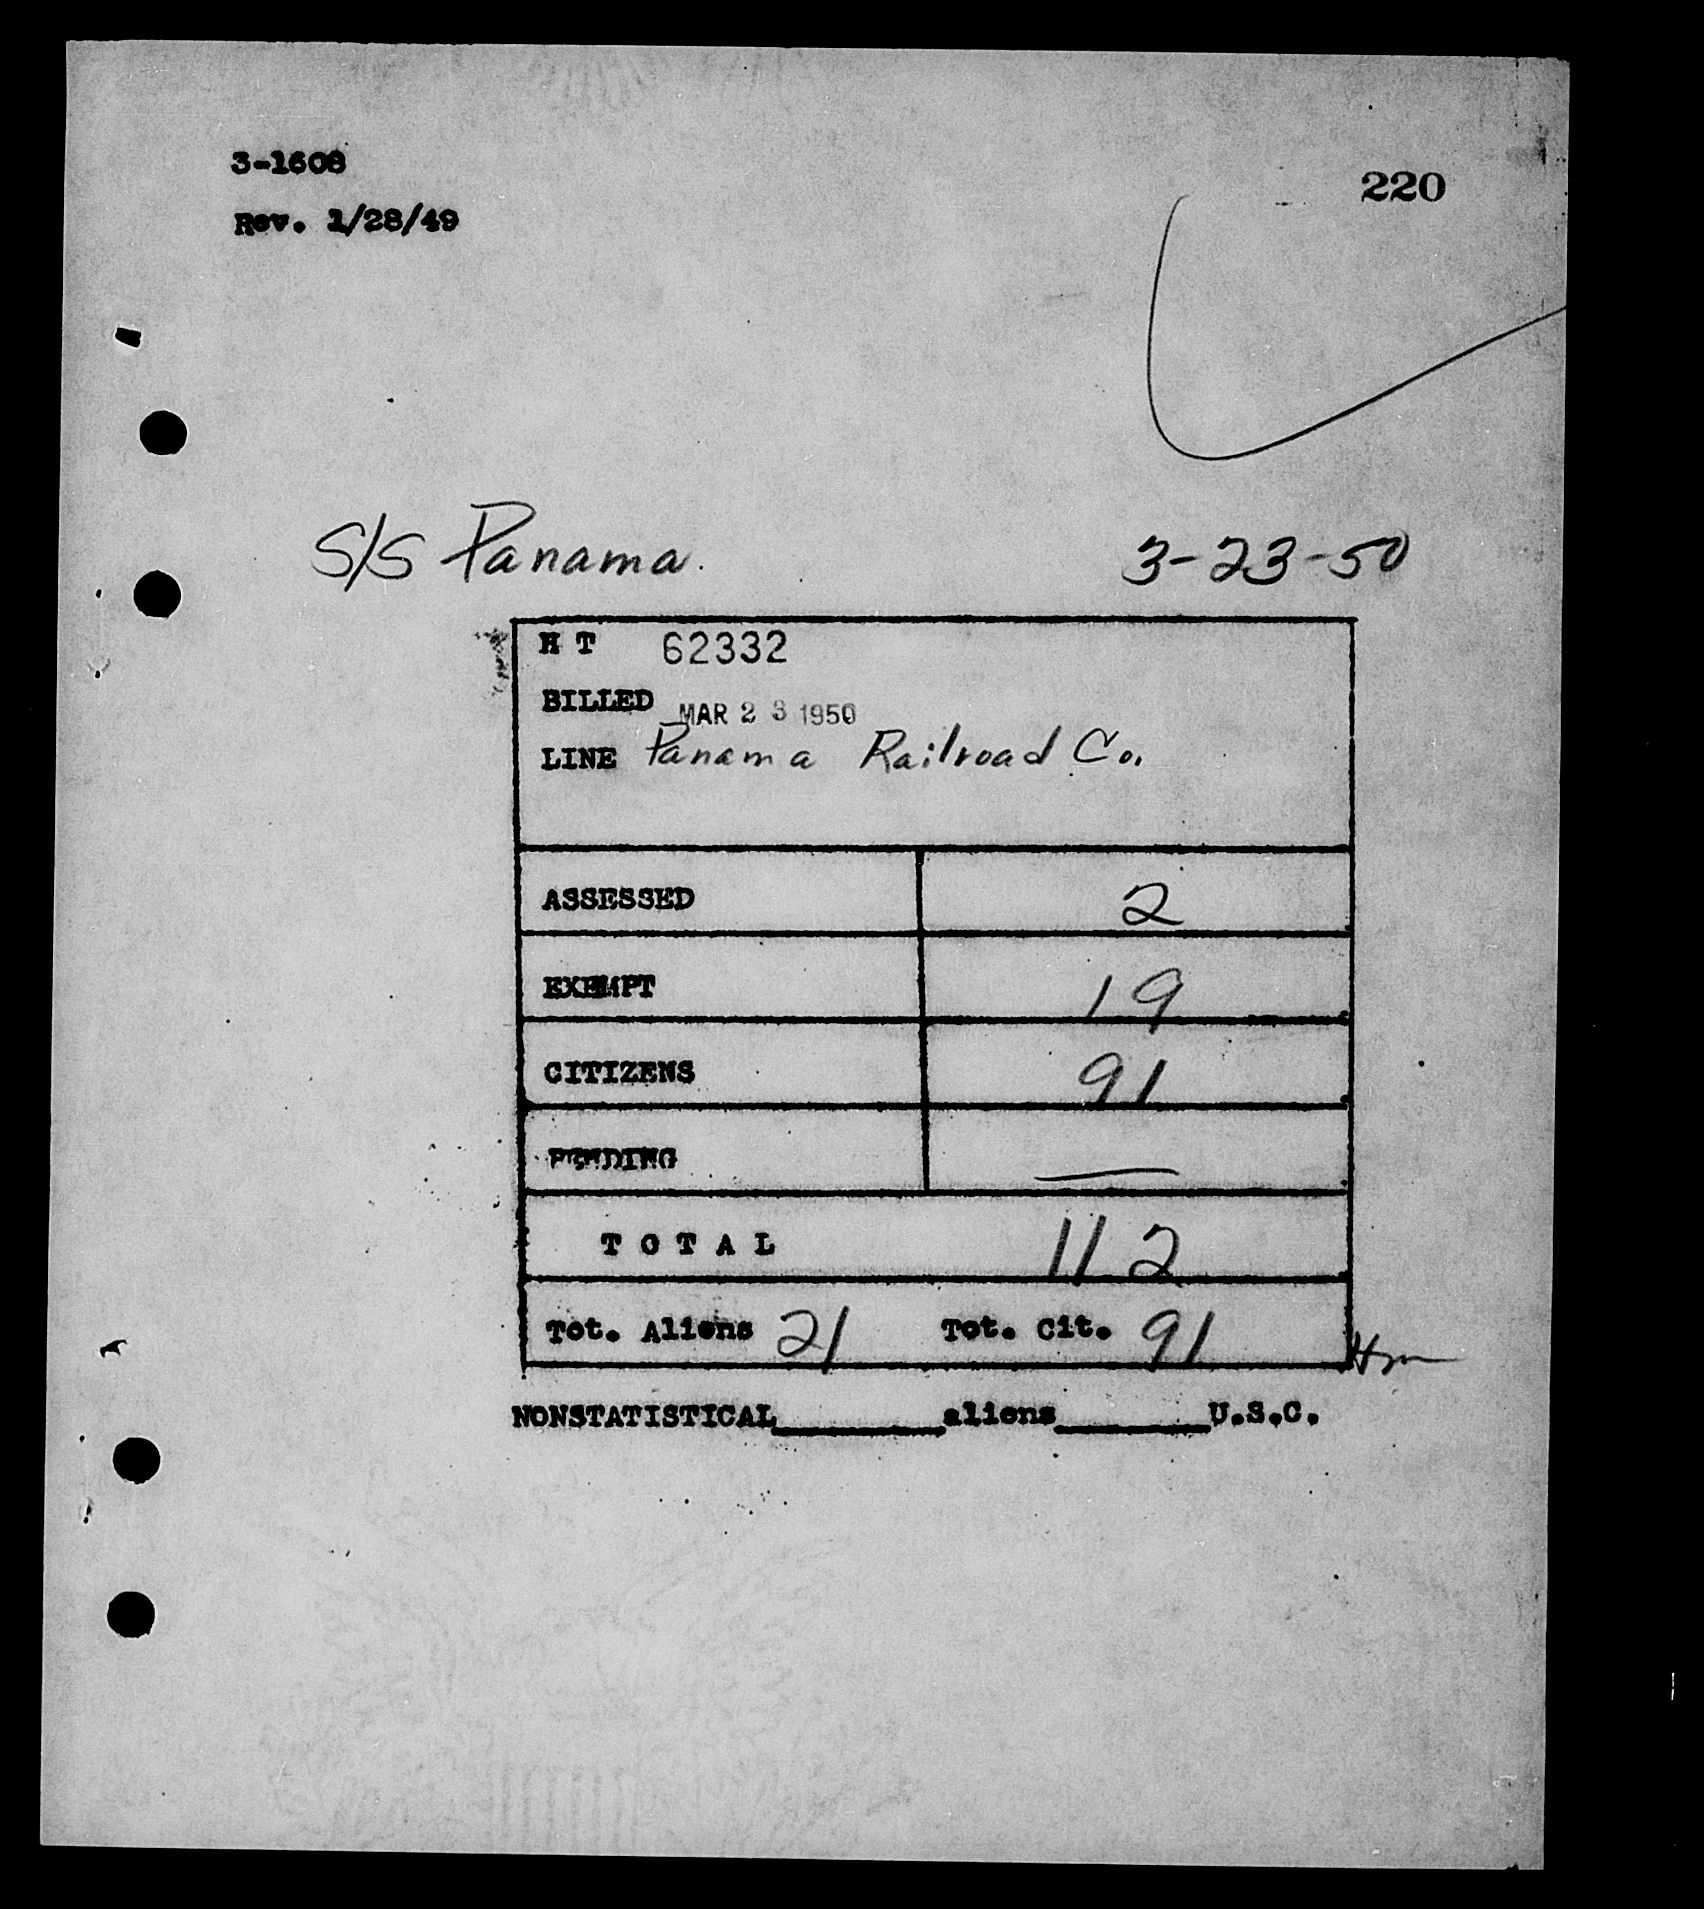 3-1608
220
Rev. 1/28/49
S/S Panama.
3-23-50
H T 62332
BILLED MAR 23 1950
LINE Panama Railroad Co.
ASSESSED 2
EXEMPT 19
CITIZENS 91
PENDING —
TOTAL 112
Tot. Aliens 21 Tot. Cit. 91
NONSTATISTICAL________aliens________U.S.C.